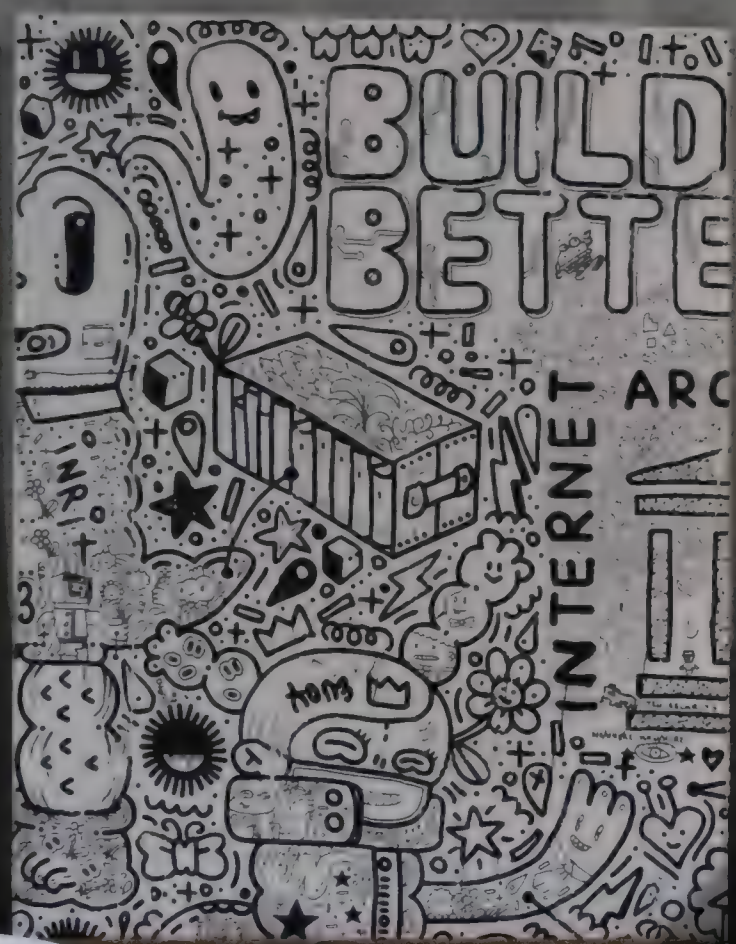 BUILD
BETTE
INTERNET
ARC
INRI
3